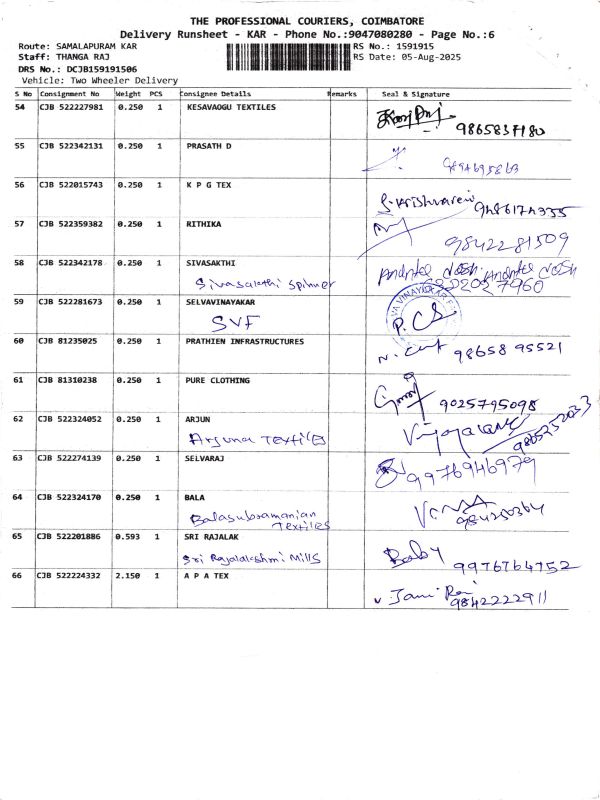 THE PROFESSIONAL COURIERS, COIMBATORE
Delivery Runsheet - KAR - Phone No.:9047080280 - Page No.:6
Route: SAMALAPURAM KAR RS No.: 1591915
Staff: THANGA RAJ RS Date: 05-Aug-2025
DRS No.: DCJB159191506
Vehicle: Two Wheeler Delivery
S No Consignment No Weight PCS Consignee Details Remarks Seal & Signature
54 CJB 522227981 0.250 1 KESAVAOGU TEXTILES
9865837180
55 CJB 522342131 0.250 1 PRASATH D
9894695863
56 CJB 522015743 0.250 1 K P G TEX
9486174355
57 CJB 522359382 0.250 1 RITHIKA
9842281509
58 CJB 522342178 0.250 1 SIVASAKTHI
Sivasakthi Spinner
59 CJB 522281673 0.250 1 SELVAVINAYAKAR
SVF P. CS
60 CJB 81235025 0.250 1 PRATHIEN INFRASTRUCTURES
98658 95521
61 CJB 81310238 0.250 1 PURE CLOTHING
9025795098
62 CJB 522324052 0.250 1 ARJUN
Arjuna Textiles 9865252033
63 CJB 522274139 0.250 1 SELVARAJ
9976946979
64 CJB 522324170 0.250 1 BALA
Balasubramanian
Textiles
65 CJB 522201886 0.593 1 SRI RAJALAK
Sri Rajalakshmi Mills Baby
9976764752
66 CJB 522224332 2.150 1 A P A TEX
9842222911